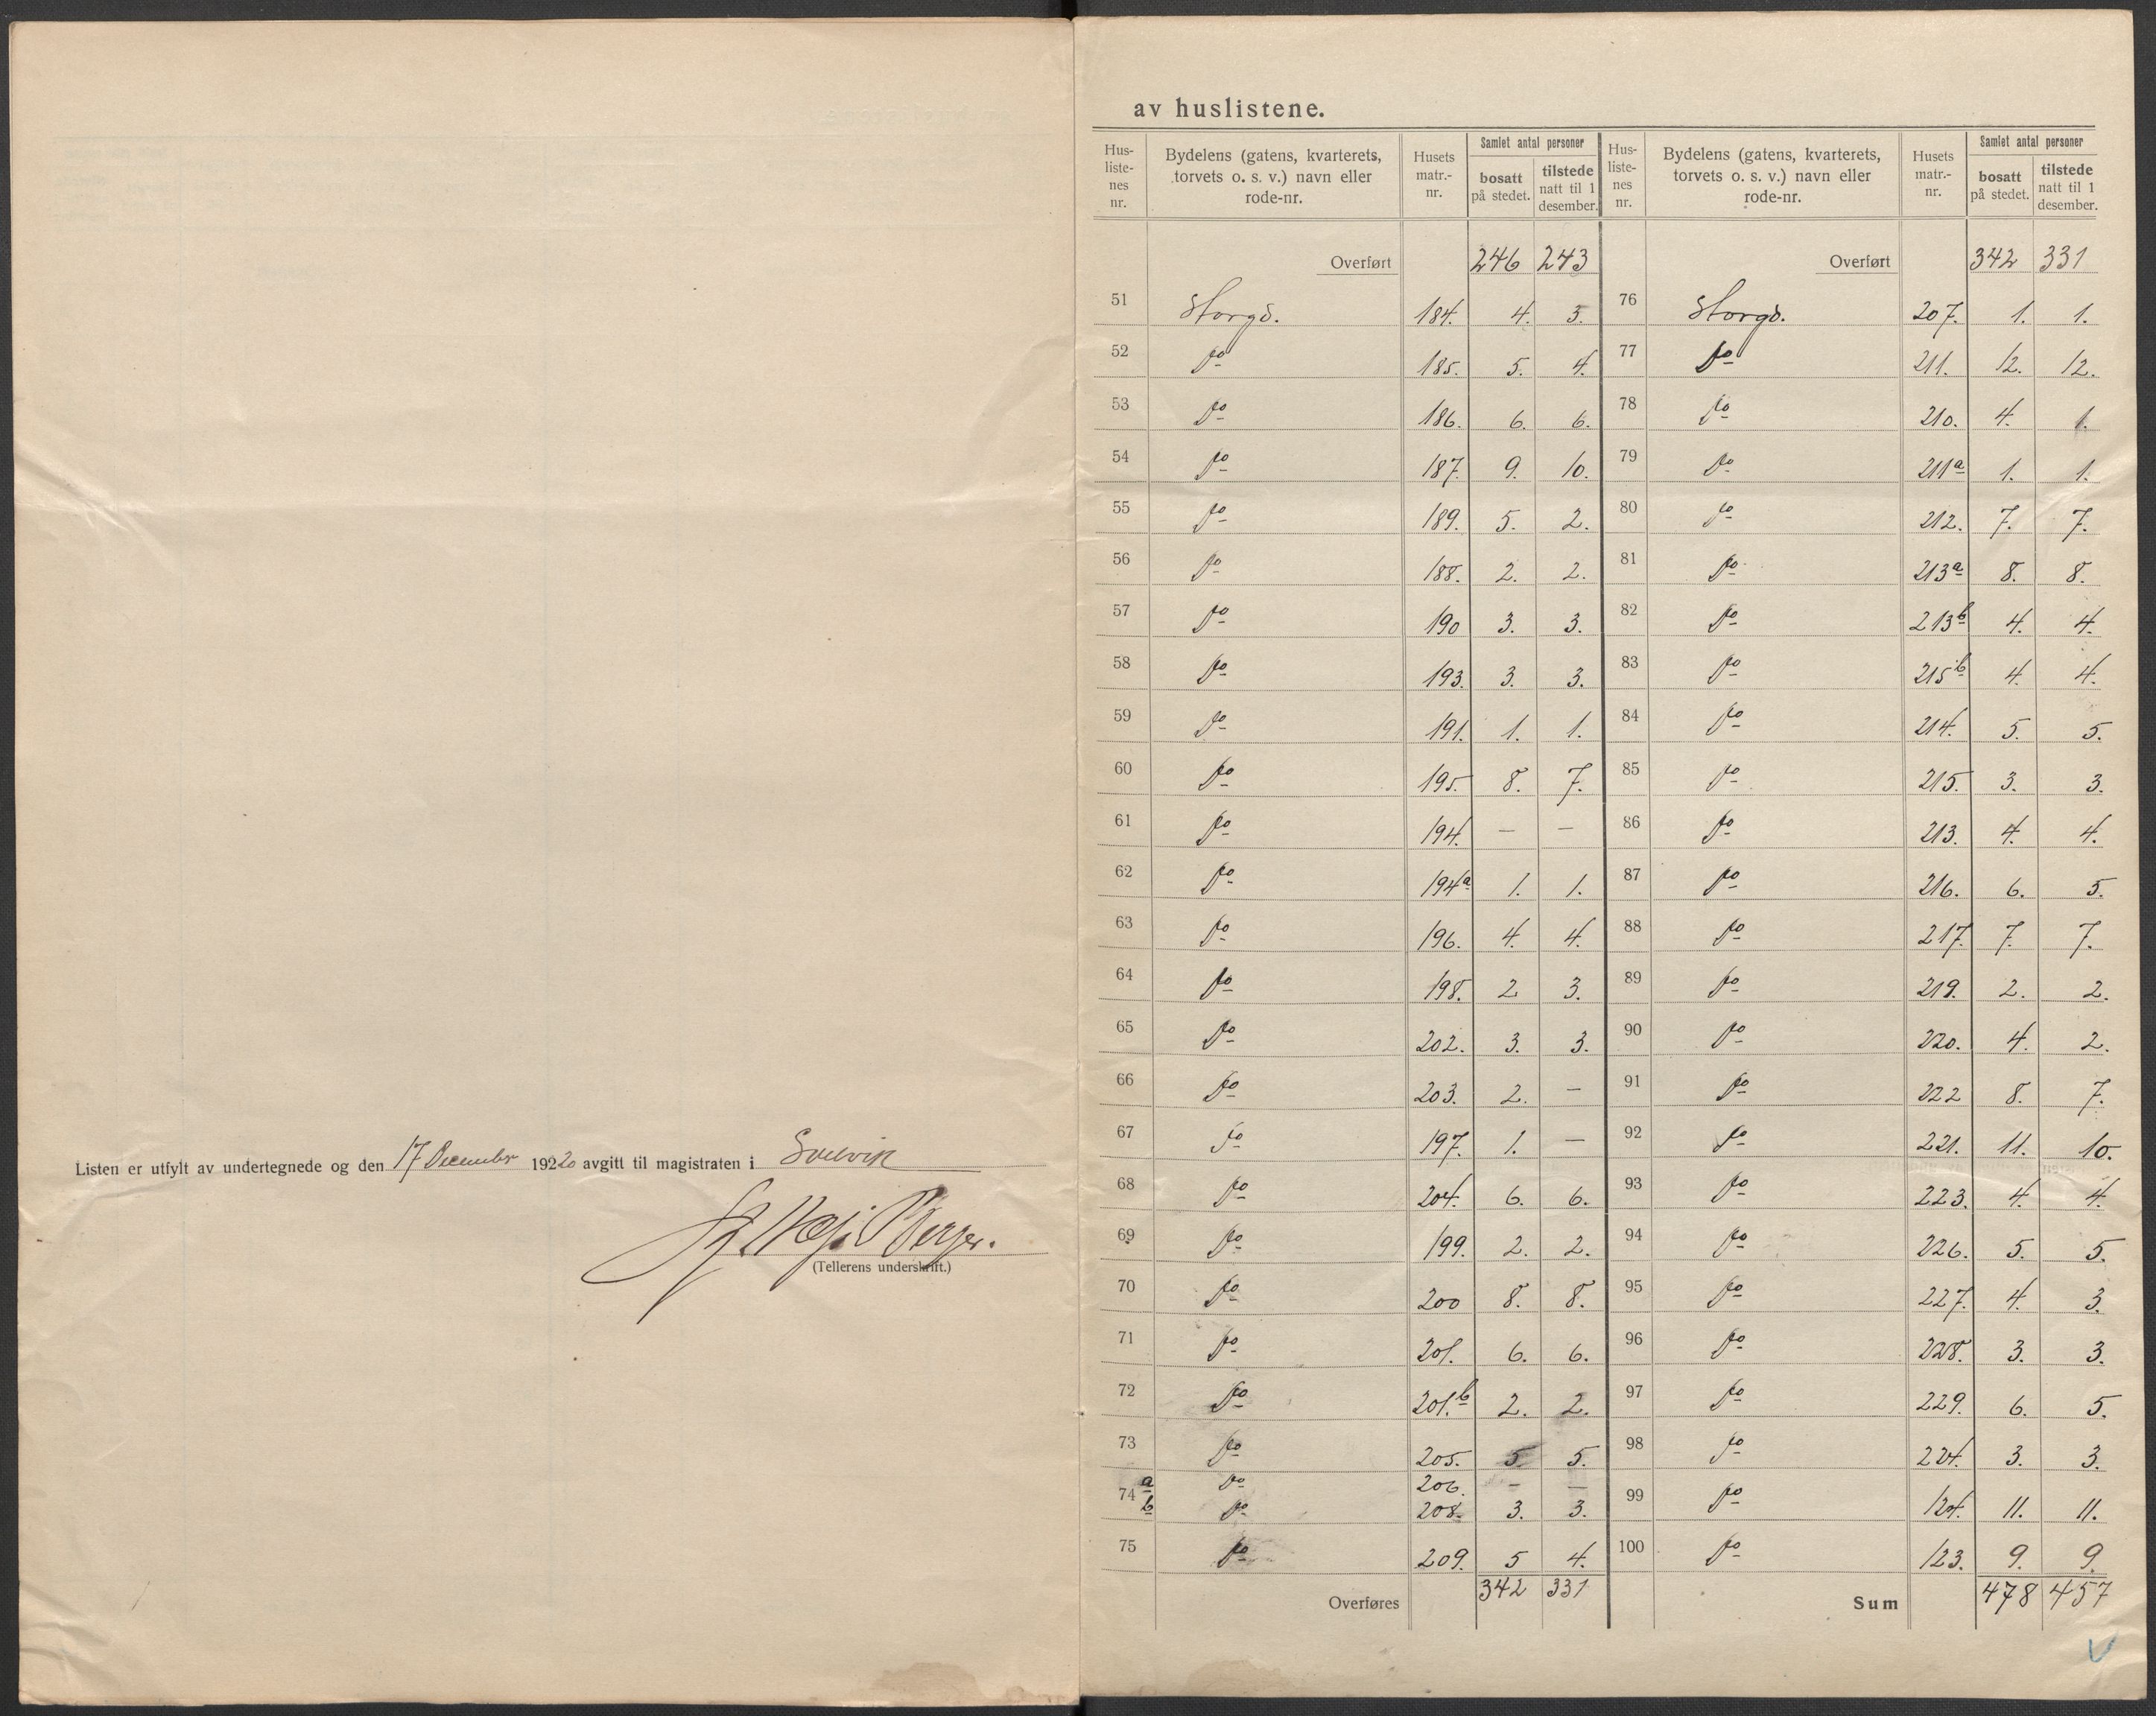 Listen er utfylt av undertegnede og den 17 December 1920 avgitt til magistraten i Svelvik
Berger.
(Tellerens underskrift.)
av huslistene.
Hus-listenes nr. Bydelens (gatens, kvarterets, torvets o. s. v.) navn eller rode-nr. Husets matr.-nr. Samlet antal personer bosatt på stedet. tilstede natt til 1 desember.
Overført 246 243
51 Storgd. 184. 4. 3.
52 Do 185. 5. 4.
53 Do 186. 6. 6.
54 Do 187. 9. 10.
55 Do 189. 5. 2.
56 Do 188. 2. 2.
57 Do 190 3. 3.
58 Do 193. 3. 3.
59 Do 191. 1. 1.
60 Do 195. 8. 7.
61 Do 194. — —
62 Do 194a 1. 1.
63 Do 196. 4. 4.
64 Do 198. 2 3.
65 Do 202. 3. 3.
66 Do 203. 2. —
67 Do 197. 1. —
68 Do 204. 6. 6.
69 Do 199. 2. 2.
70 Do 200 8. 8.
71 Do 201. 6. 6.
72 Do 201.b 2. 2.
73 Do 205. 5 5.
74 a Do 206. — —
b Do 208. 3. 3.
75 Do 209. 5 4.
Overføres 342 331
Hus-listenes nr. Bydelens (gatens, kvarterets, torvets o. s. v.) navn eller rode-nr. Husets matr.-nr. Samlet antal personer bosatt på stedet. tilstede natt til 1 desember.
Overført 342 331
76 Storgd. 207. 1. 1.
77 Do 211. 12. 12.
78 Do 210. 4. 1.
79 Do 211a 1. 1.
80 Do 212. 7. 7.
81 Do 213a 8. 8.
82 Do 213b 4. 4.
83 Do 215b 4. 4.
84 Do 214. 5. 5.
85 Do 215. 3. 3.
86 Do 213. 4. 4.
87 Do 216. 6. 5.
88 Do 217. 7. 7.
89 Do 219. 2. 2.
90 Do 220. 4. 2.
91 Do 222 8. 7.
92 Do 221. 11. 10.
93 Do 223. 4. 4.
94 Do 226. 5. 5.
95 Do 227. 4. 3.
96 Do 228. 3. 3.
97 Do 229. 6. 5.
98 Do 224. 3. 3.
99 Do 124. 11. 11.
100 Do 123. 9. 9.
Sum 478 457